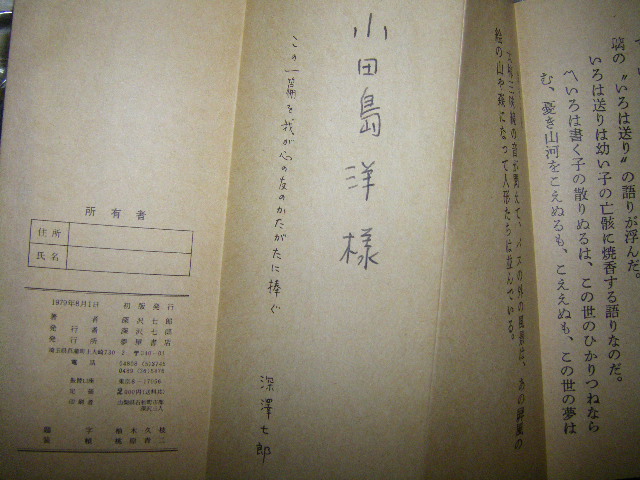 璃の〝いろは送り〟の語りが浮んだ。
いろは送りは幼い子の亡骸に焼香する語りなのだ。
〽いろは書く子の散りぬるは、この世のひかりつねなら
む、憂き山河をこえぬるも、こええぬも、この世の夢は
太棹三味線の音が聞えて、バスの外の風景は、あの屏風の
絵の山や森になって人形たちは並んでいる。
小田島洋様
この一篇を我が心の友のかたがたに捧ぐ
深澤七郎
所有者
住所
氏名
1979年8月1日 初版発行
著者 深沢七郎
発行者 深沢七郎
発行所 夢屋書店
電話
定価
印刷者
題字
装幀